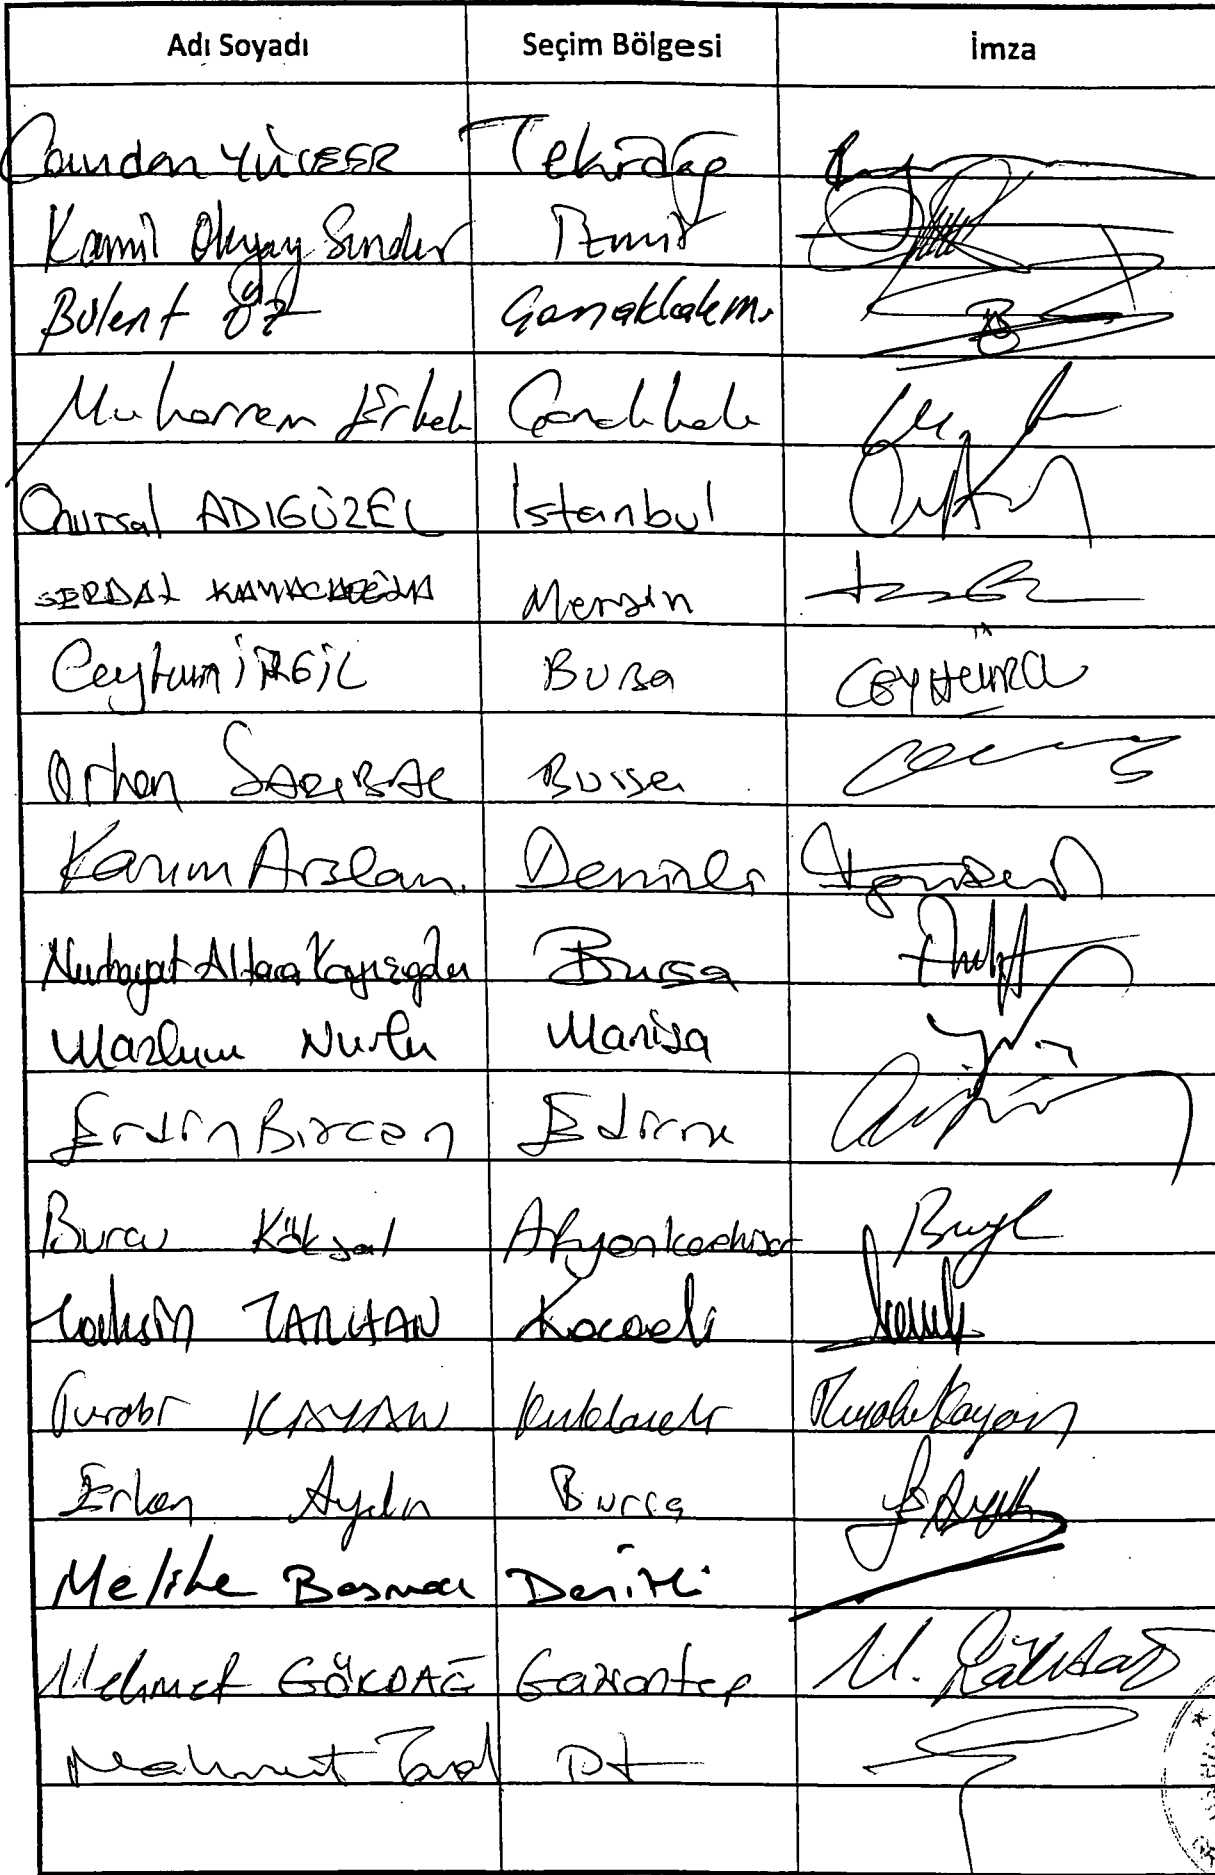 Adı Soyadı Seçim Bölgesi İmza
Candan YÜCEER Tekirdağ
Kamil Okyay Sındır İzmir
Bülent Öz Çanakkale m.
Muharrem Erkek Çanakkale
Onursal ADIGÜZEL İstanbul
SERDAL Mersin
Ceyhun İRGİL Bursa CEYHUN
Orhan SARIBAL Bursa
Kazım Arslan. Denizli
Nurhayat Altaca Kayışoğlu Bursa
Mazlum Nurlu Manisa
Erdin Bircan Edirne
Burcu Köksal Afyonkarahisar
Tahsin TARHAN Kocaeli
Turabi KAYAN Kırklareli Turabi Kayan
Erkan Aydın Bursa
Melike Basmacı Denizli
Mehmet GÖKDAĞ Gaziantep M. Gökdağ
Mahmut Tanal